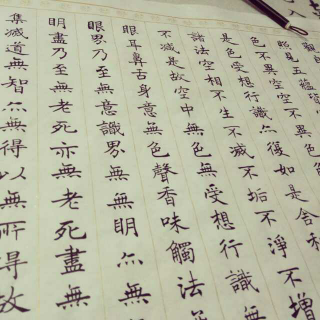 照見五蘊皆
色不異空空不
是色受想行識亦復如是舍利
諸法空相不生不滅不垢不淨不增
不減是故空中無色無受想行識
眼耳鼻舌身意無色聲香味觸法無
眼界乃至無意識界無無明亦無
明盡乃至無老死亦無老死盡無
集滅道無智亦無得以無所得故